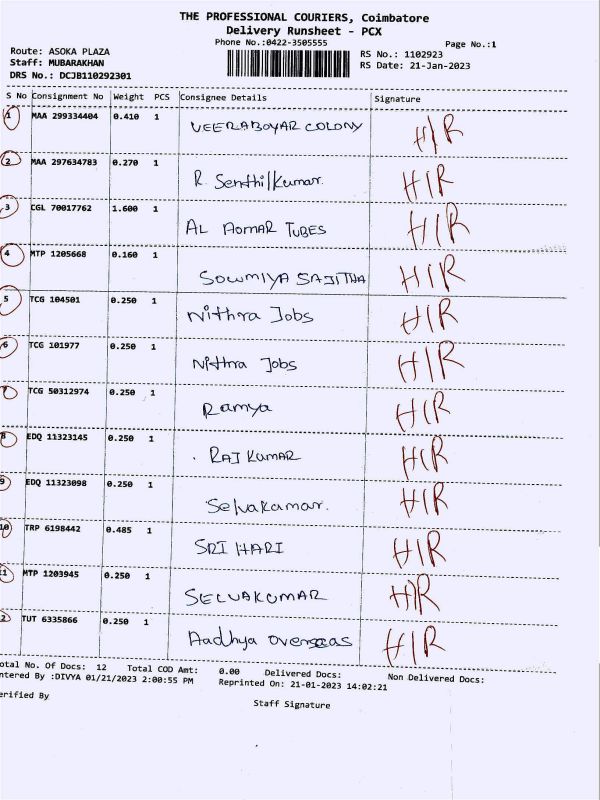 THE PROFESSIONAL COURIERS, Coimbatore
Delivery Runsheet - PCX
Phone No.:0422-3505555
Page No.:1
Route: ASOKA PLAZA
RS No.: 1102923
Staff: MUBARAKHAN
RS Date: 21-Jan-2023
DRS No.: DCJB110292301
S No Consignment No Weight PCS Consignee Details Signature
1 MAA 299334404 0.410 1 VEERABOYAR COLONY H/R
2 MAA 297634783 0.270 1 R. Senthilkumar. H/R
3 CGL 70017762 1.600 1 AL AOMAR TUBES H/R
4 MTP 1205668 0.160 1 SOWMIYA SAJITHA H/R
5 TCG 104501 0.250 1 Nithra Jobs H/R
6 TCG 101977 0.250 1 Nithra Jobs H/R
7 TCG 50312974 0.250 1 Ramya H/R
8 EDQ 11323145 0.250 1 RAJ KUMAR H/R
9 EDQ 11323098 0.250 1 Selvakamar. H/R
10 TRP 6198442 0.485 1 SRI HARI H/R
11 MTP 1203945 0.250 1 SELVAKUMAR H/R
2 TUT 6335866 0.250 1 Aadhya overseas H/R
otal No. Of Docs: 12 Total COD Amt: 0.00 Delivered Docs: Non Delivered Docs:
ntered By :DIVYA 01/21/2023 2:00:55 PM Reprinted On: 21-01-2023 14:02:21
erified By
Staff Signature